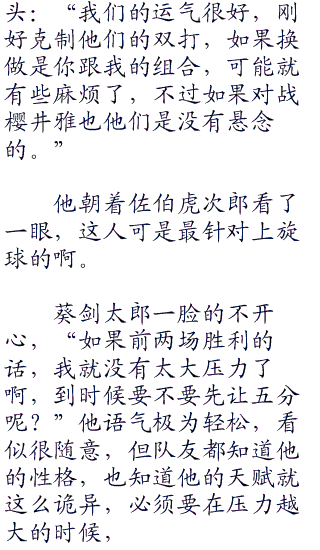 头：“我们的运气很好，刚
好克制他们的双打，如果换
做是你跟我的组合，可能就
有些麻烦了，不过如果对战
樱井雅也他们是没有悬念
的。”
他朝着佐伯虎次郎看了
一眼，这人可是最针对上旋
球的啊。
葵剑太郎一脸的不开
心，“如果前两场胜利的
话，我就没有太大压力了
啊，到时候要不要先让五分
呢？”他语气极为轻松，看
似很随意，但队友都知道他
的性格，也知道他的天赋就
这么诡异，必须要在压力越
大的时候，